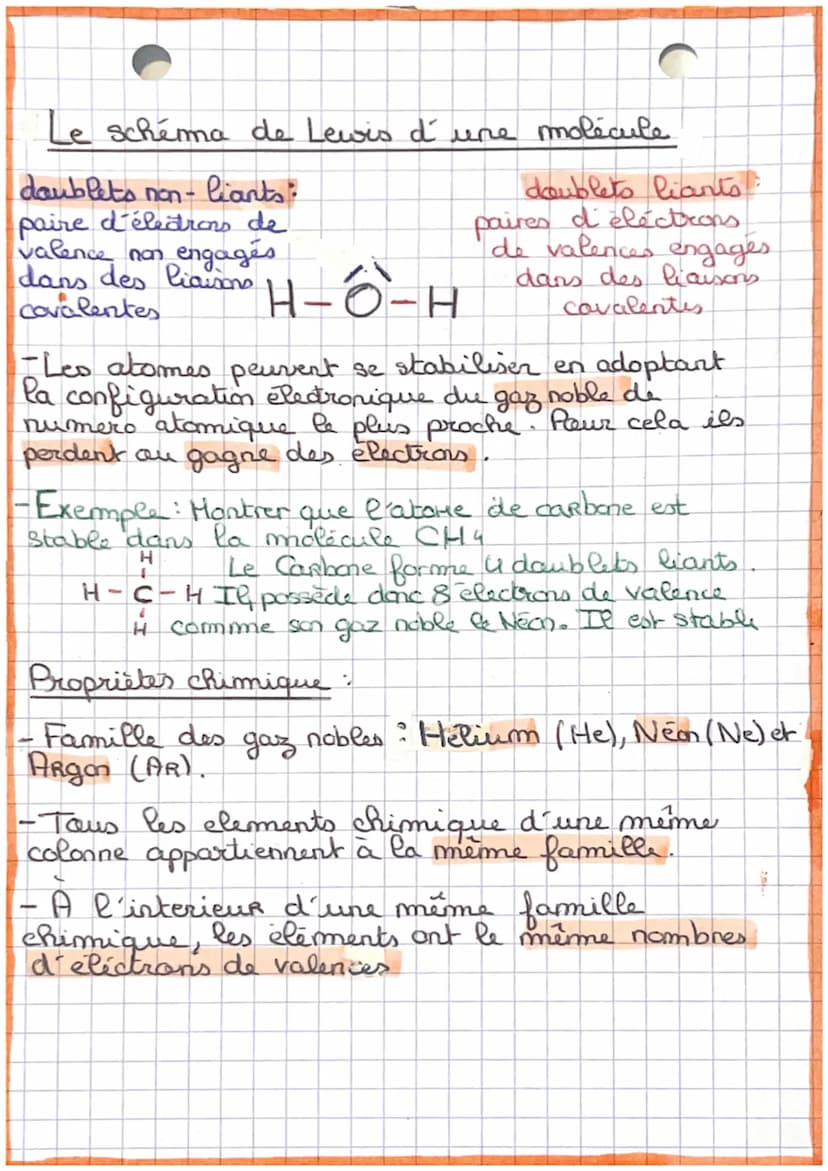 Le schéma de Lewis d'une molécule
doublets non-liants :
paire d'électrons de
valence non engagés
dans des liaisons
covalentes
doublets liants :
paires d'éléctrons
de valences engagés
dans des liaisons
covalentes
H-O-H
-Les atomes peuvent se stabiliser en adoptant
la configuration électronique du gaz noble de
numero atomique le plus proche. Pour cela ils
perdent ou gagne des électrons.
-Exemple : Montrer que l'atome de carbone est
stable dans la molécule CH4
H
Le Carbone forme 4 doublets liants.
H-C-H Il possède donc 8 électrons de valence
H comme son gaz noble le Néon. Il est stable
Propriétés chimique :
- Famille des gaz nobles : Hélium (He), Néon (Ne) et
Argon (AR).
-Tous les elements chimique d'une même
colonne appartiennent à la même famille.
- À l'interieur d'une même famille
chimique, les éléments ont le même nombres
d'éléctrons de valences